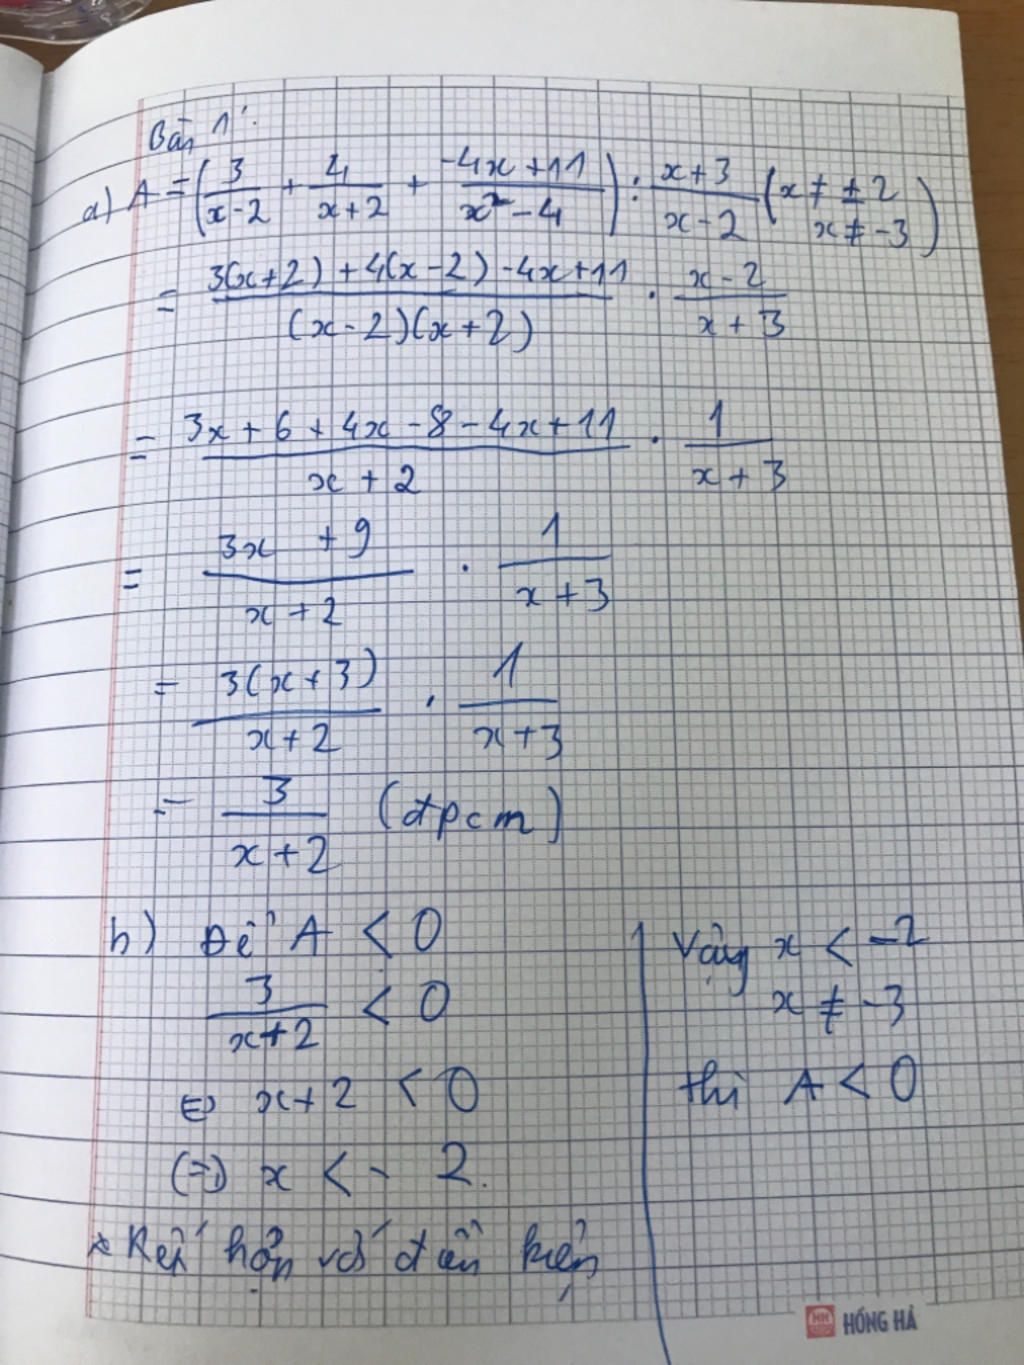 Bài 1:
a) A = (3/(x-2) + 4/(x+2) + (-4x+11)/(x²-4)) : (x+3)/(x-2) (x ≠ ±2 x ≠ -3)
= (3(x+2) + 4(x-2) - 4x + 11)/((x-2)(x+2)) . (x-2)/(x+3)
= (3x + 6 + 4x - 8 - 4x + 11)/(x+2) . 1/(x+3)
= (3x + 9)/(x+2) . 1/(x+3)
= 3(x+3)/(x+2) . 1/(x+3)
= 3/(x+2) (đpcm)
b) Để A < 0
3/(x+2) < 0
⇔ x+2 < 0
(=) x < - 2.
* Kết hợp với điều kiện
Vậy x < -2
x ≠ -3
thì A < 0
HH HỒNG HÀ